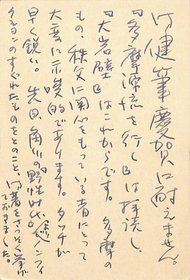 御健筆慶賀に耐えません。
「多摩源流を行く」は拝読し
「大岩壁」はこれからです。多摩の
もつ、秩父に関心をもっている者にとって
大変に示唆的であります。タッチが
早く鋭い。先日、角川の「野性時代」
すぐれたものをとのこと、
ておきました。